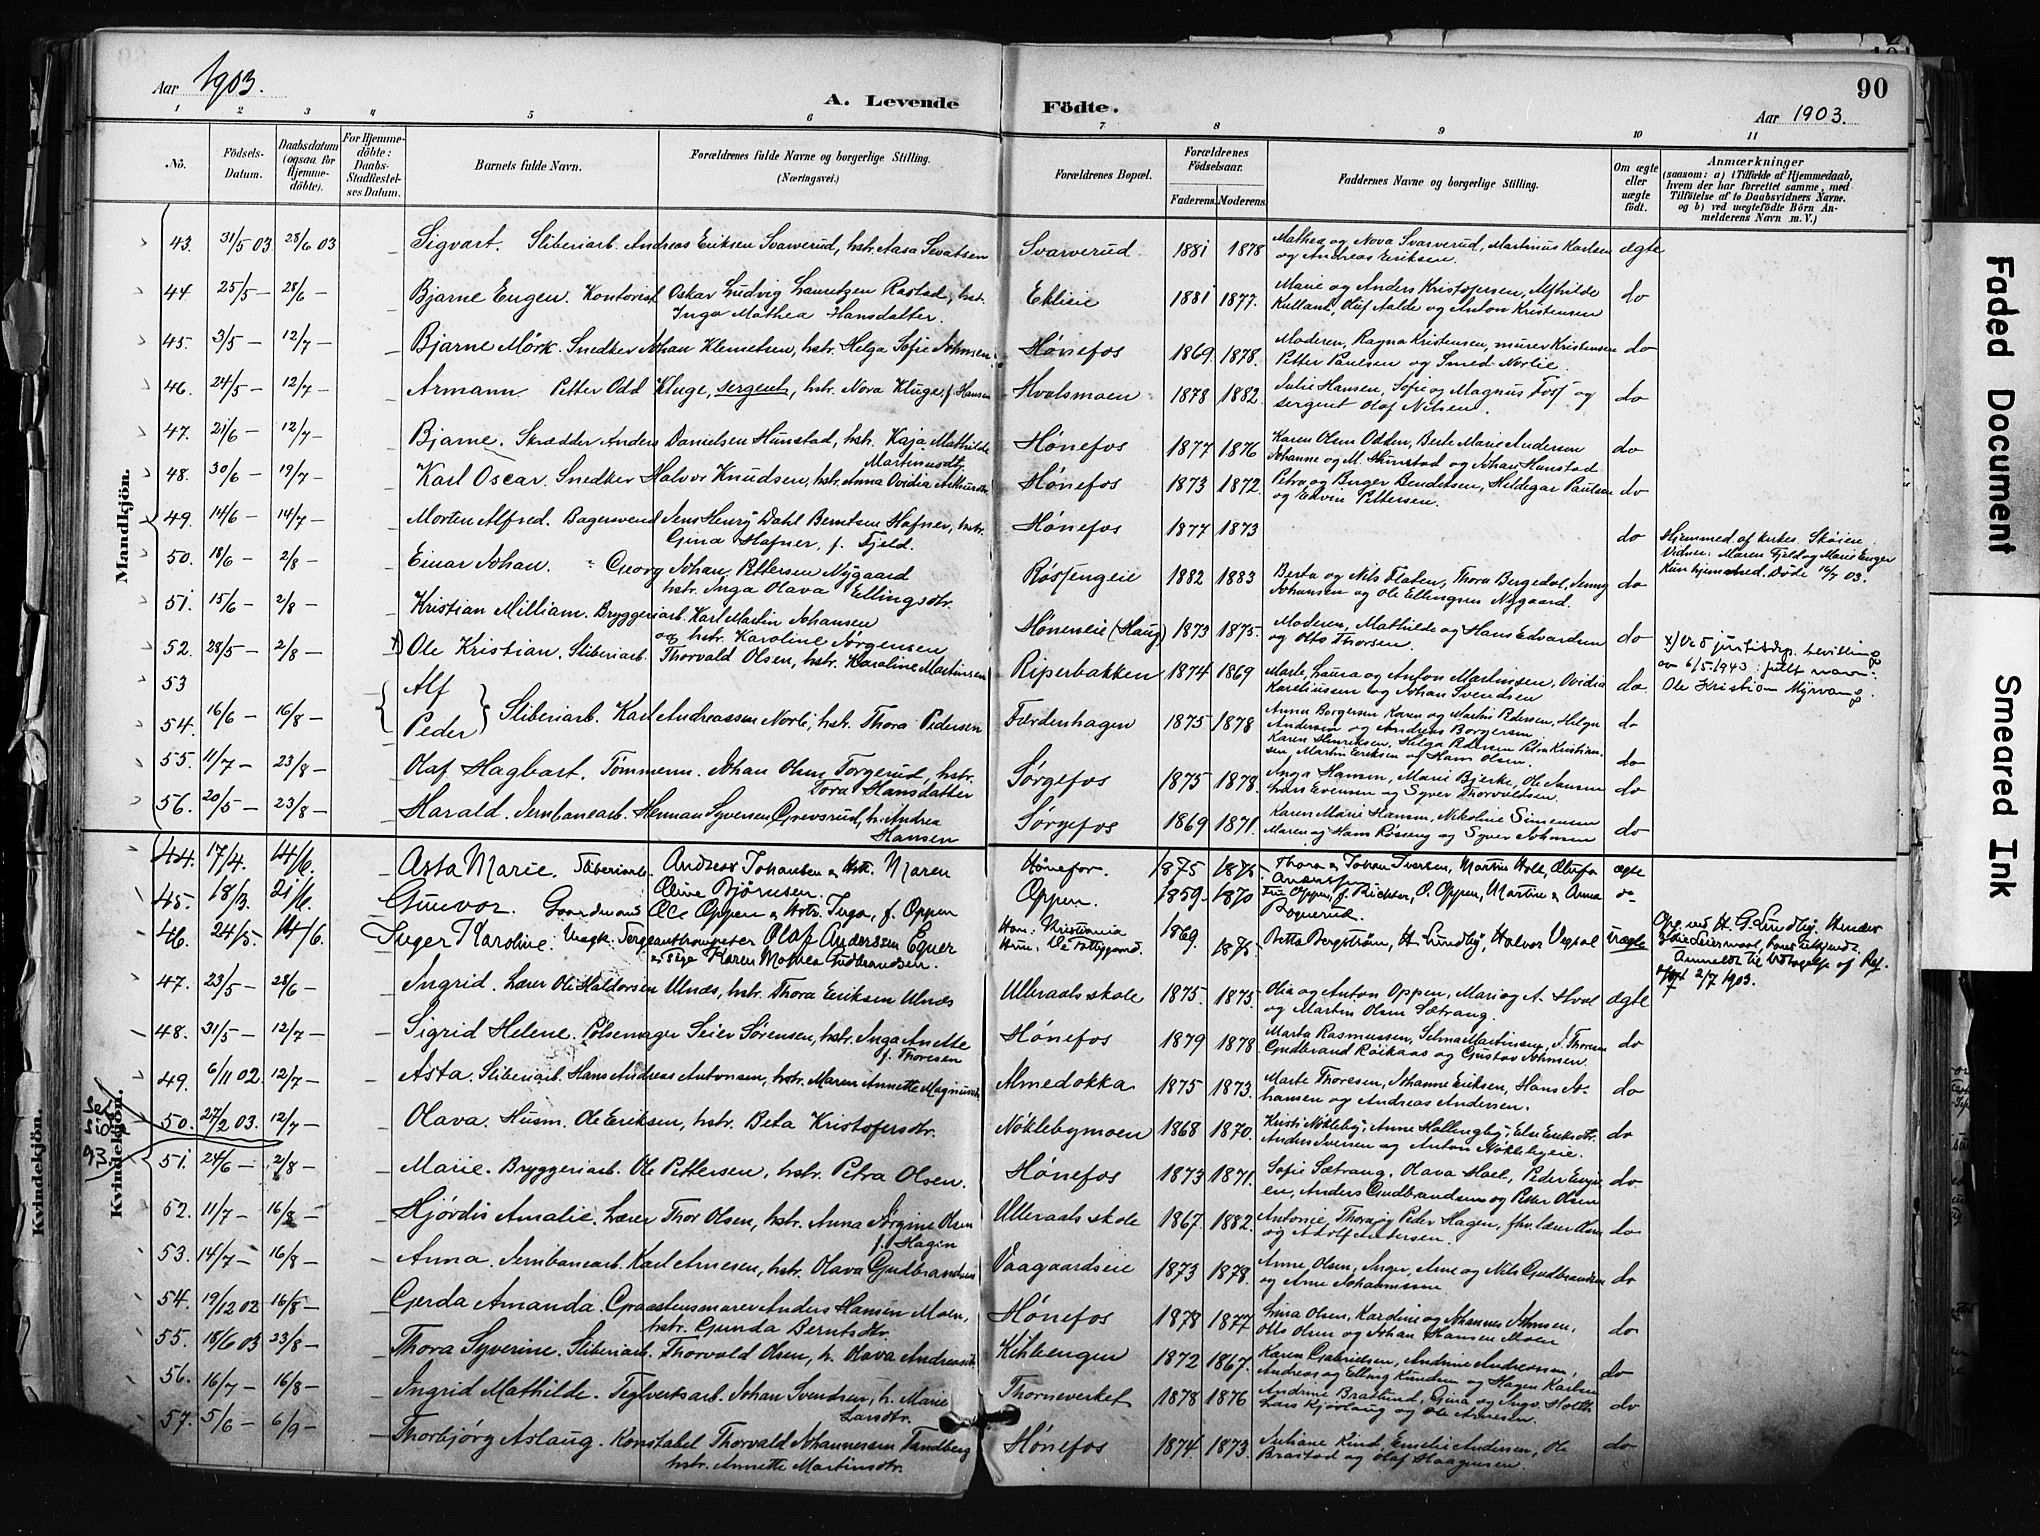 Aar 1903.
A. Levende Födte.
90
Aar 1903.
1 2 3 4 5 6 7 8 9 10 11
No.
Födsels-Datum.
Daabsdatum (ogsaa for Hjemmedöbte).
For Hjemmedöbte: Daabs-Stadfæstelses Datum.
Barnets fulde Navn.
Forældrenes fulde Navne og borgerlige Stilling. (Næringsvei.)
Forældrenes Bopæl.
Forældrenes Födselsaar.
Faderens. Moderens.
Faddernes Navne og borgerlige Stilling.
Om ægte eller uægte födt.
Anmærkninger
(saasom: a) i Tilfælde af Hjemmedaab, hvem der har forrettet samme, med Tilföielse af to Daabsvidners Navne, og b) ved uægtefödte Börn Anmelderens Navn m. V.)
Mandkjön.
43. 31/5 03 28/6 03 – Sigvart. Sliberiarb. Andreas Eriksen Svarverud, hstr. Aasa Sevatsen Svarverud 1881 1878 Mathea og Nova Svarverud, Martinus Karlsen og Andreas Eriksen. ægte
44. 25/5 – 28/6 – – Bjarne Eugen. Kontorist Oskar Ludvig Lauritzen Rastad, hst. Inga Mathea Hansdatter. Eklieie 1881 1877. Marie og Anders Kristofersen, Alfhilde Kulland, Oluf Aalde og Anton Kristensen do
45. 3/5 – 12/7 – – Bjarne Mörk. Snedker Johan Klemetsen, hstr. Helga Sofie Johnsen. Hønefos 1869 1878. Moderen, Ragna Kristensen, murer Kristensen Petter Paulsen og Smed Norlie. do
46. 24/5 – 12/7 – – Armann. Petter Odd Kluge, sergent, hstr. Nora Kluge, f. Hansen Hvalsmoen 1878 1882. Julie Hansen, Sofie og Magnus Foss og sergent Olaf Nilsen. do
47. 21/6 – 12/7 – – Bjarne. Skrædder Anders Danielsen Hunstad, hstr. Kaja Mathilde Martinusdtr. Hønefos 1877 1876 Karen Olsen Odden, Berte Marie Andersen Johanne og M. Hunstad og Johan Hunstad do
48. 30/6 – 19/7 – – Karl Oscar. Snedker Halvor Knudsen, hstr. Anna Ovidia Arthursdtr. Hønefos 1873 1872. Petra og Birger Bendiksen, Hildegar Paulsen og Edvin Pettersen. do
49. 14/6 – 14/7 – – Morten Alfred. Bagersvend Jens Henry Dahl Berntsen Hafner, hstr. Gina Hafner, f. Fjeld. Hønefos 1877 1873 do Hjemmed. af kirkes. Skøien Vidner: Maren Fjeld og Marie Enger Kun hjemmed. Døde 16/7 03.
50. 18/6 – 2/8 – – Einar Johan. Georg Johan Pettersen Nygaard hstr. Inga Olava Ellingsdtr. Røssengeie 1882 1883 Berta og Nils Flaten, Thora Bergedal, Jenny Johansen og Ole Ellingsen Nygaard. do
51. 15/6 – 2/8 – – Kristian William. Bryggeriarb. Karl Martin Johansen og hstr. Karoline Jørgensen Høneneie (Haug) 1873 1875. Moderen, Mathilde og Hans Edvardsen og Otto Thorsen. do
52. 28/5 – 2/8 – x) Ole Kristian. Sliberiarb. Thorvald Olsen, hstr. Karoline Martinsen Riperbakken 1874 1869 Marte, Laura og Anton Martinsen, Ovidia Kareliusen og Johan Svendsen do. x) Ved justitsdep. bevilling av 6/5 1943: fullt navn: Ole Kristian Myrvang
53 Alf
54. 16/6 – 16/8 – Peder Sliberiarb. Karl Andreassen Norli, hstr. Thora Pedersen Færdenhagen 1875 1878 Anna Borgersen Karen og Martin Pedersen, Helga Andersen og Andreas Borgersen do Karen Henriksen, Helga Pedersen Petra Kristiansen, Martin Eriksen og Hans Olsen. do
55. 11/7 – 23/8 – – Olaf Hagbart. Tømmerm. Johan Olsen Torgerud, hstr. Tora Hansdatter Sørgefos 1875 1878. Anga Hansen, Marie Bjerke, Ole Jansen Lars Evensen og Syver Thorvaldsen. do
56. 20/5 – 23/8 – – Harald. Jernbanearb. Herman Syversen Grevsrud, h. Andrea Hansen Sørgefos 1869 1871. Karen Marie Hansen, Nikoline Simensen Maren og Hans Røsseng og Syver Johnsen do
Kvindekjön.
44. 17/4. 14/6. – Asta Marie. Sliberiarb. Andreas Johansen & Hstr. Maren Oline Bjørnsen. Hønefos. 1875 1875. Thora & Johan Iversen, Martin Hole, Olufa Andersen ægte
45. 18/3. 21/6. – Gunvor. Gaardmand Ole Oppen & Hstr. Inga, f. Oppen Oppen. 1859 1870 Fru Oppen, f. Richter, O. Oppen, Martin & Anna Rognerud. do
46. 24/5. 14/6. – Inger Karoline. Ungk. Sergeanttrompeter Olaf Anderssen Egner & Pige Karen Mathea Gudbrandsen. Han: Kristiania Hun: Ve Pottygaard. 1869 1875 Betta Bergstrøm, H. Lundby, Halvor Vegsal Uægte Opg. ved H. G. Lundby. Hendes Anmeldt til Udtagelse af Reg. 2/7 1903.
47. 23/5 – 28/6 – Ingrid. Lærer Ole Haldorsen Ulnæs, hstr. Thora Eriksen Ulnæs Ulleraals skole 1875. 1875 Olia og Anton Oppen, Mari og A. Hval og Martin Olsen Sætrang. ægte
48. 31/5 – 12/7 – – Sigrid Helene. Pølsemager Seier Sørensen, hstr. Inga Anette f. Thoresen Hønefos 1879 1878 Marta Rasmussen, Selma Martinsen, J. Thoresen Gudbrand Röikaas og Gustav Johnsen. do
49. 6/11 02. 12/7 – – Asta. Sliberiarb. Hans Andreas Antonsen, hstr. Maren Annette Magnusdtr. Almedokka 1875 1873. Marte Thoresen, Johanne Eriksen, Hans Johansen og Andreas Andersen. do
50. 27/2 03. 12/7 – – Olava. Husm. Ole Eriksen, hstr. Beta Kristofersdtr. Nøklebymoen 1868 1870. Kristi Nøkleby, Anne Hallingby, Else Eriksdtr. Anders Iversen og Anton Nøklebyeie. do
51. 24/6 – 2/8 – – Marie. Bryggeriarb. Ole Pettersen, hstr. Petra Olsen. Hønefos 1873 1871. Sofie Sætrang, Olava Hael, Peder Engen, Anders Gudbrandsen og Peter Olsen do
52. 11/7 – 16/8 – – Hjørdis Amalie. Lærer Thor Olsen, hstr. Anna Jørgine Olsen f. Hagen Ulleraals skole 1867. 1882. Antonie, Thora og Peder Hagen, fhv. lærer og Adolf Andersen. do
53. 14/7 – 16/8 – – Anna. Jernbanearb. Karl Arnesen, hstr. Olava Gudbrandsen Vaagaardseie 1873 1878. Anne Olsen, Inger, Arne og Nils Gudbrandsen og Arne Johannesen do
54. 19/12 02 16/8 – – Gerda Amanda. Graastensmurer Anders Hansen Moen, hstr. Gunda Berntsdtr. Hønefos 1878 1877 Lina Olsen, Karoline og Johannes Johnsen, Otto Olsen og Johan Hansen Moen do
55. 18/6 03 23/8 – – Thora Syverine. Sliberiarb. Thorvald Olsen, h. Olava Andreasdtr. Kihlengen 1872 1867. Karen Gabrielsen, Andrine Andreassen, Andreas og Elling Knudsen og Hagen Karlsen do
56. 16/7 – 16/8 – – Ingrid Mathilde. Teglverksarb. Johan Svendsen, h. Marie Larsdtr. Thorneverket 1878 1876 Andrine Braklund, Gina og Ingv. Holth Lars Kjørlaug og Ole Arnesen. do
57. 5/6 – 6/9 – – Thorbjörg Aslaug. Konstabel Thorvald Johannessen Tandberg hstr. Annette Martinsdtr. Hønefos 1874 1873. Juliane Kind, Emelie Andersen, Ole Brastad og Olaf Haagensen. do
Kvindekjön.
Faded Document
Smeared Ink